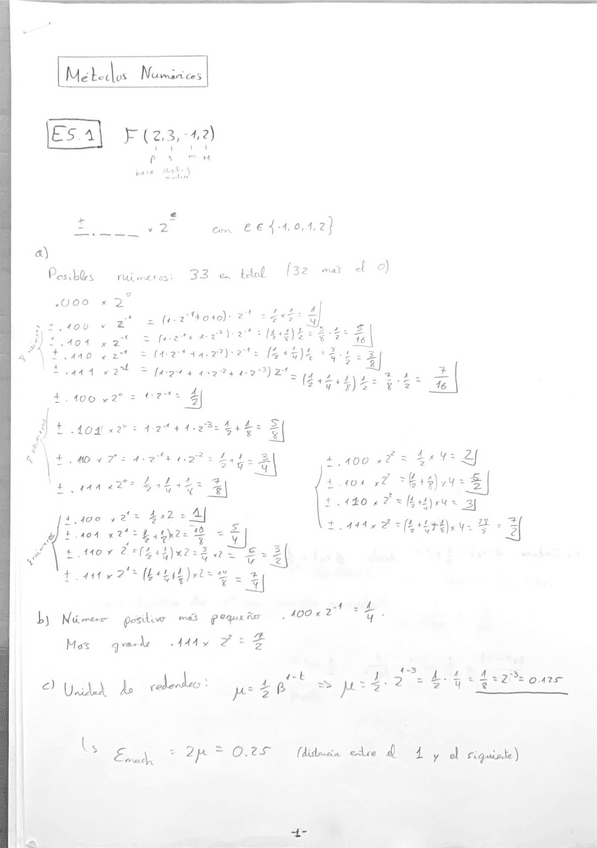 Métodos Numéricos
E5.1 F(2,3,-1,2)
β t m M
base
± .___ × 2^e con e ∈ {-1,0,1,2}
a)
Posibles números: 33 en total (32 más el 0)
.000 × 2^0
± .100 × 2^-1 = (1·2^-1+0+0)·2^-1 = 1/2 × 1/2 = 1/4
± .101 × 2^-1 = (1·2^-1 + 1·2^-3)·2^-1 = (1/2+1/8)1/2 = 5/8 · 1/2 = 5/16
± .110 × 2^-1 = (1·2^-1 + 1·2^-2)·2^-1 = (1/2+1/4)1/2 = 3/4 · 1/2 = 3/8
± .111 × 2^-1 = (1·2^-1 + 1·2^-2 + 1·2^-3)2^-1 = (1/2+1/4+1/8)1/2 = 7/8 · 1/2 = 7/16
8 números
± .100 × 2^0 = 1·2^-1 = 1/2
± .101 × 2^0 = 1·2^-1 + 1·2^-3 = 1/2 + 1/8 = 5/8
± .110 × 2^0 = 1·2^-1 + 1·2^-2 = 1/2 + 1/4 = 3/4
± .111 × 2^0 = 1/2 + 1/4 + 1/8 = 7/8
8 números
± .100 × 2^1 = 1/2 × 2 = 1
± .101 × 2^1 = (1/2+1/8)×2 = 10/8 = 5/4
± .110 × 2^1 = (1/2+1/4)×2 = 3/4 × 2 = = 3/2
± .111 × 2^1 = (1/2+1/4+1/8)×2 = = 7/4
8 números
± .100 × 2^2 = 1/2 × 4 = 2
± .101 × 2^2 = (1/2+1/8)×4 = 5/2
± .110 × 2^2 = (1/2+1/4)×4 = 3
± .111 × 2^2 = (1/2+1/4+1/8)×4 = = 7/2
b) Número positivo más pequeño .100 × 2^-1 = 1/4.
Mas grande .111 × 2^2 = 7/2
c) Unidad de redondeo: μ = 1/2 β^1-t => μ = 1/2 · 2^1-3 = 1/2 · 1/4 = 1/8 = 2^-3 = 0.125
↳ Emach = 2μ = 0.25 (distancia entre el 1 y el siguiente)
-1-